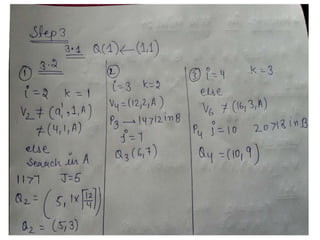 Step 3
3.1 Q(1) ← (1,1)
① 3.2
i=2 k=1
V₂ ≠ (a', 1, A)
≠ (4,1,A)
else
Search in A
11>7 J=5
Q₂ = (5, 1×⌈12/4⌉)
Q₂ = (5,3)
②
i=3 k=2
V₄=(12,2,A)
P₃ → 14>12 in B
j=7
Q₃(6,7)
③ i=4 k=3
else
V₆ ≠ (16,3,A)
P₄ j=10 20>18 in B
Q₄=(10,9)